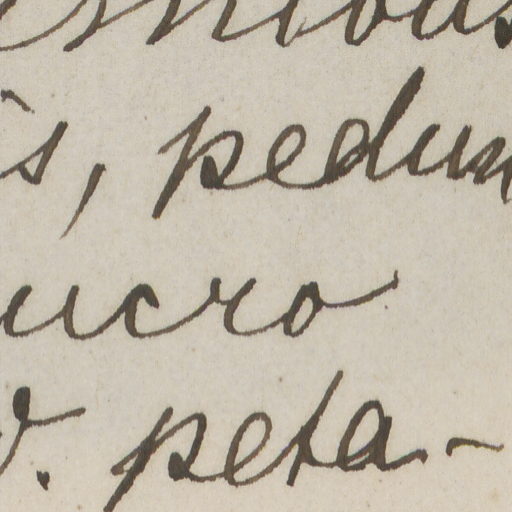 is, pedun
ucro
v. peta-